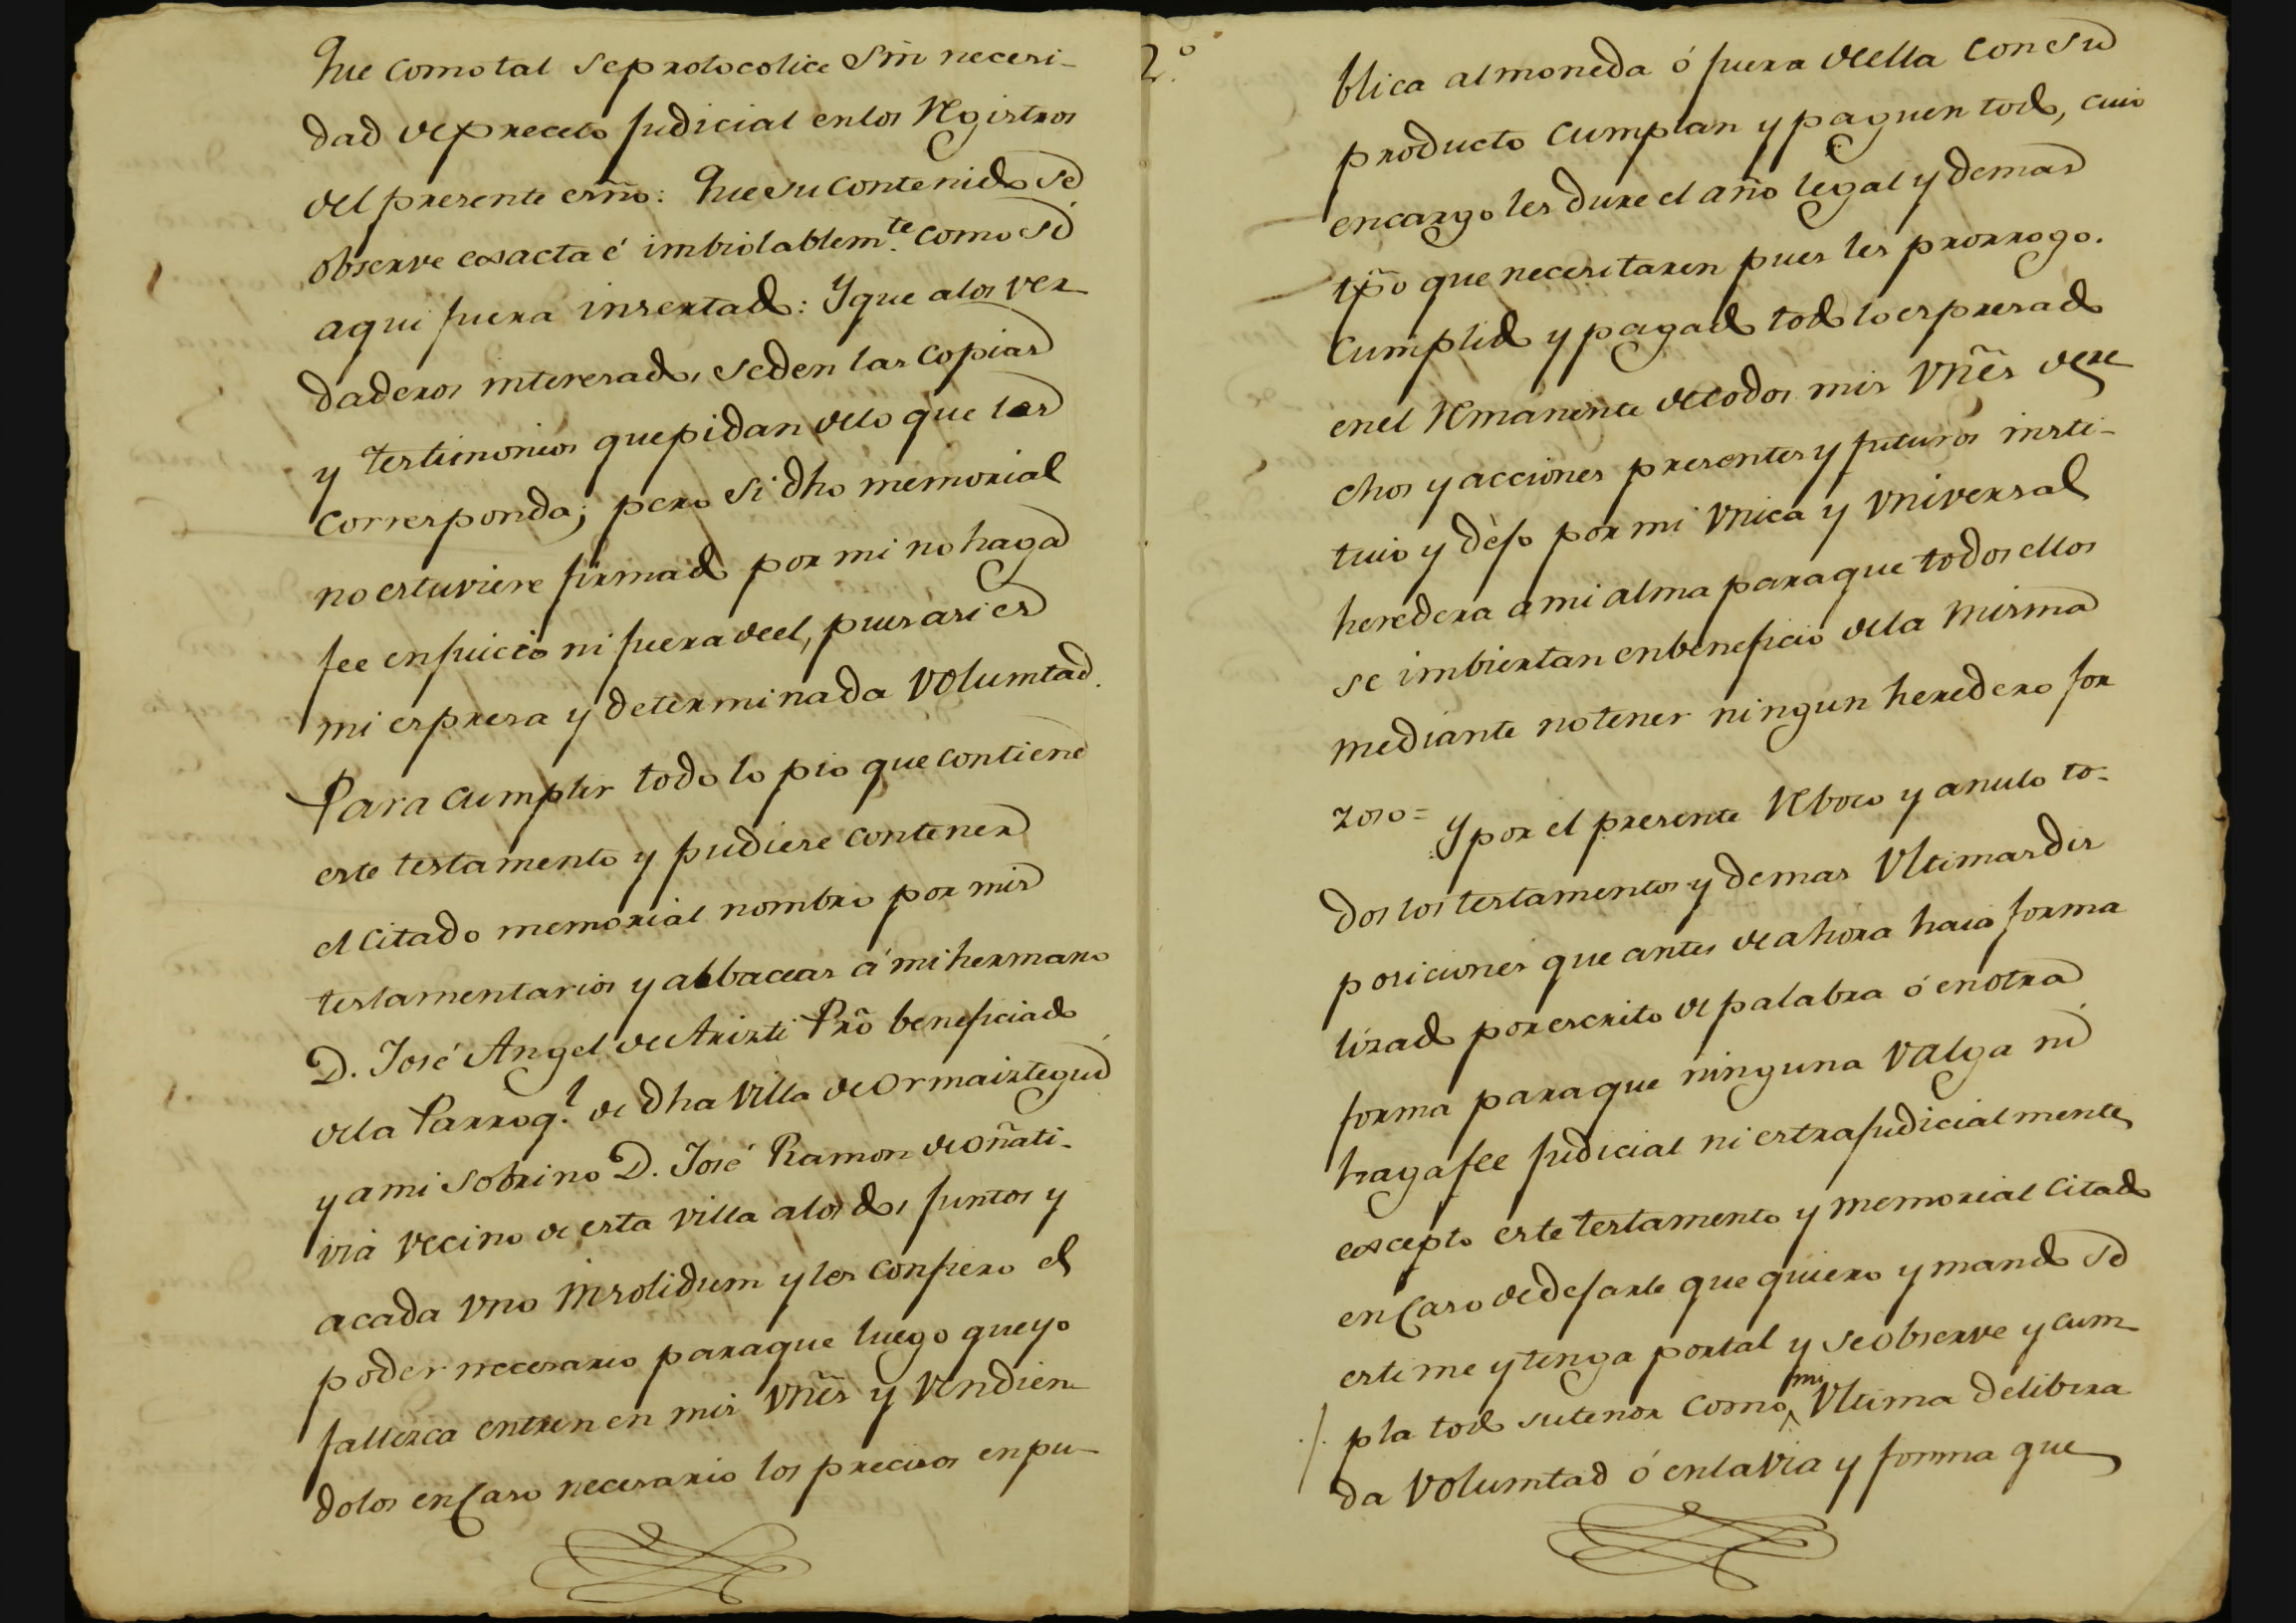 Que como tal se protocolice sin necesi-
dad de preceto judicial en los Registros
del presente esño: Que su contenido se
observe exacta é imbiolablemte. como si
aqui fuera insertado: Y que a los ver
daderos interesados se den las copias
y testimonios que pidan de lo que les
corresponda; pero si dho memorial
no estuviere firmado por mi no haga
fee en juicio ni fuera de el, pues asi es
mi espresa y determinada volumtad.
Para cumplir todo lo pio que contiene
este testamento y pudiere contener
el citado memorial nombro por mis
testamentarios y albaceas á mi hermano
D. José Angel de Arizti Prõ beneficiado
de la Parroql. de dha Villa de Ormaiztegui
y a mi sobrino D. José Ramon de Oñati-
via vecino de esta villa a los dos juntos y
a cada uno insolidum y les confiero el
poder necesario para que luego que yo
fallezca entren en mis vñes y vendien
dolos en caso necesario los precisos en pu-
2.º
blica almoneda ó fuera de ella con su
producto cumplan y paguen todo, cuio
encargo les dure el año legal y demas
tpõ que necesitaren pues les prorrogo.
Cumplido y pagado todo lo espresado
en el remanente de todos mis vñes dere
chos y acciones presentes y futuros insti-
tuio y dejo por mi vnica y vniversal
heredera a mi alma para que todos ellos
se imbiertan en beneficio de la misma
mediante no tener ningun heredero for
zoso= Y por el presente reboco y anulo to-
dos los testamentos y demas vltimas dis
posiciones que antes de ahora haia forma
lizado por escrito de palabra ó en otra
forma para que ninguna valga ni
haga fee judicial ni estrajudicialmente
excepto este testamento y memorial citado
en caso de dejarle que quiero y mando se
estime y tenga por tal y se observe y cum
pla todo su tenor como mi vltima delibera
da volumtad ó en la via y forma que